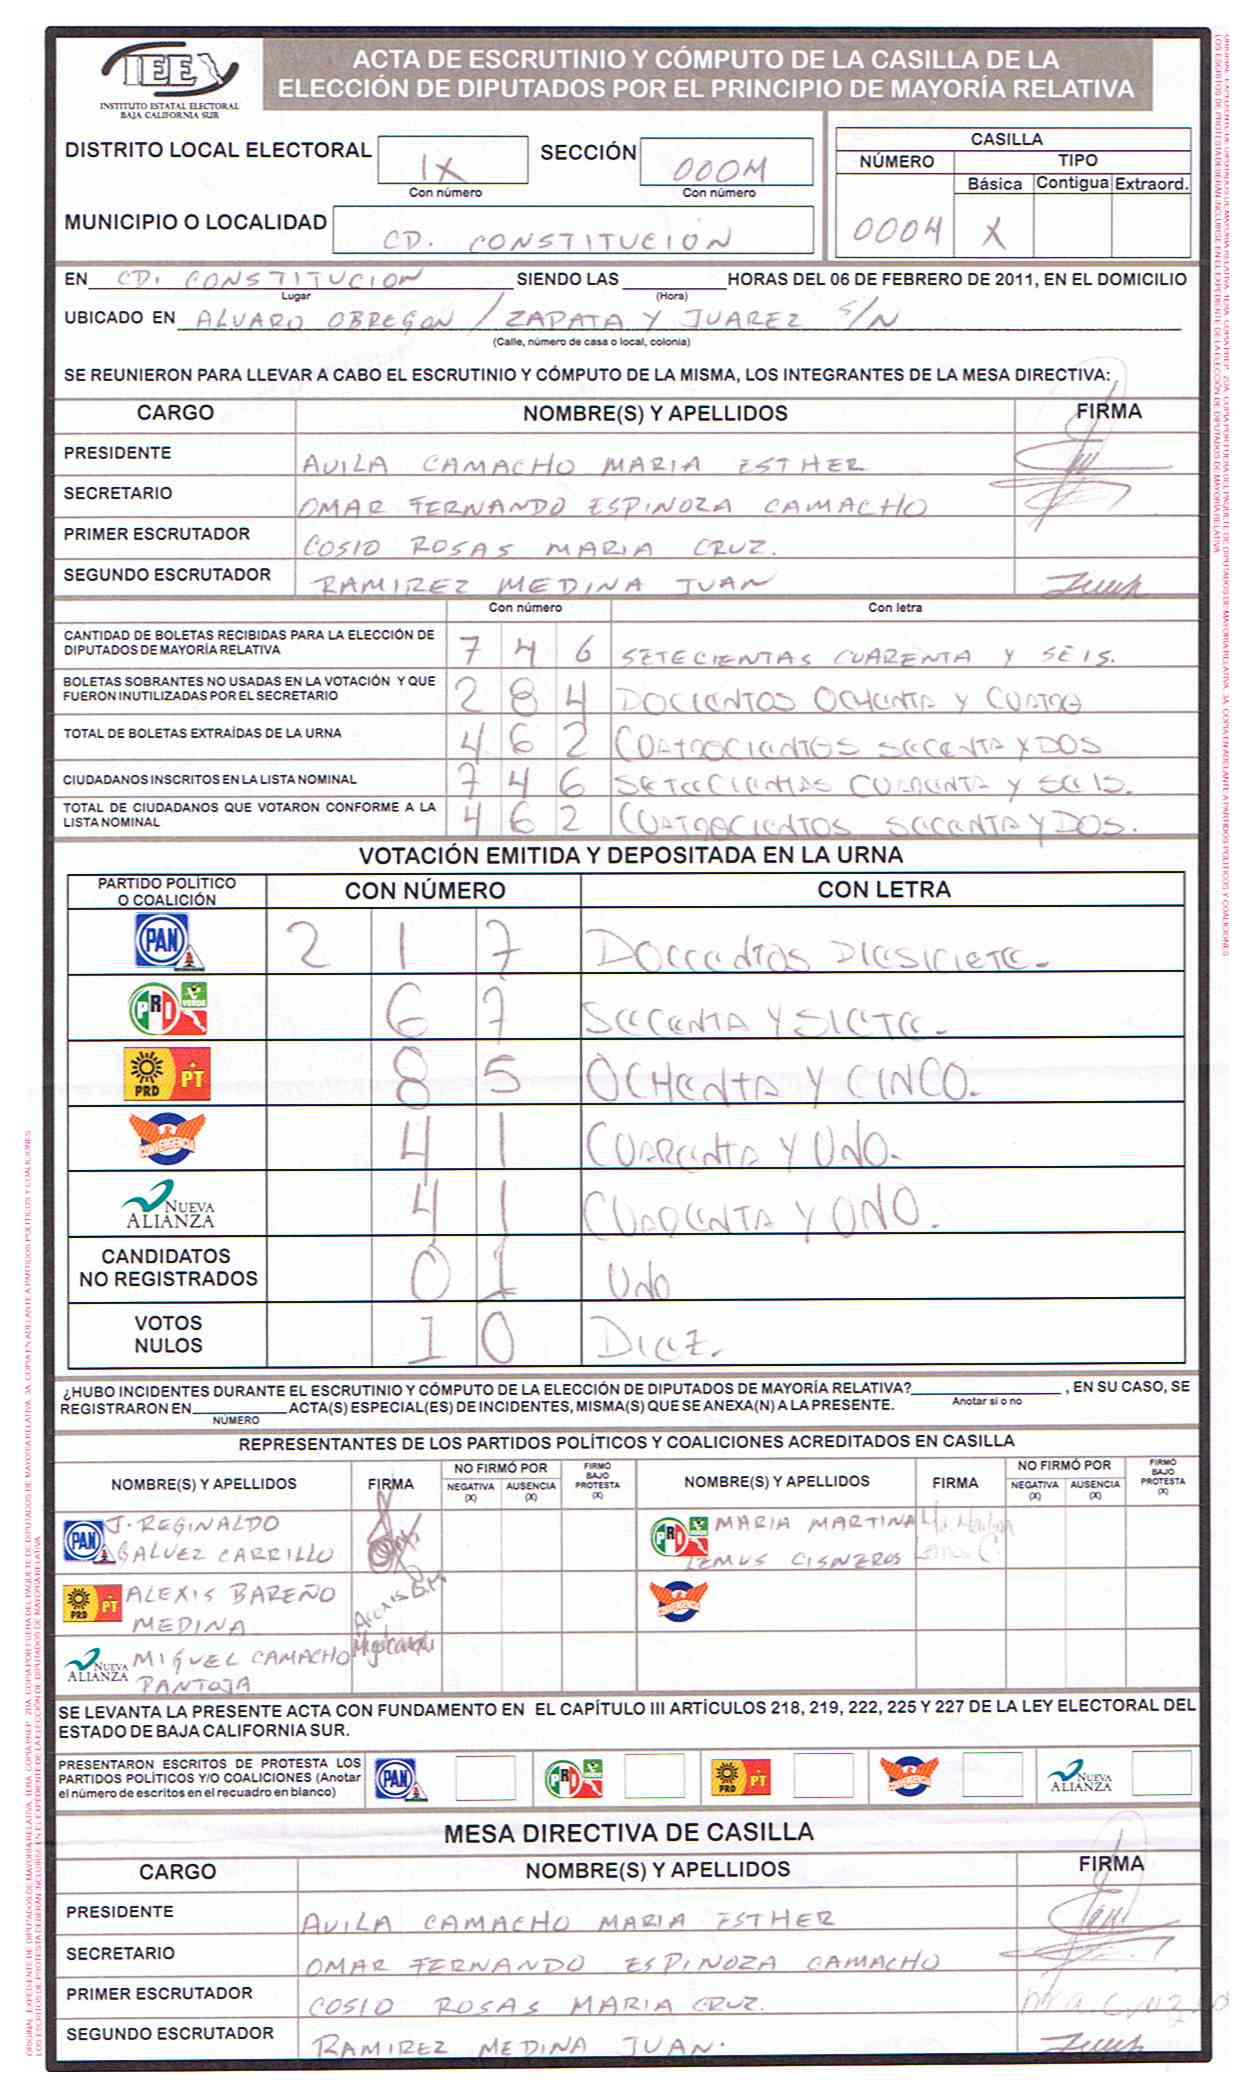 IEE
INSTITUTO ESTATAL ELECTORAL
BAJA CALIFORNIA SUR
ACTA DE ESCRUTINIO Y CÓMPUTO DE LA CASILLA DE LA
ELECCIÓN DE DIPUTADOS POR EL PRINCIPIO DE MAYORÍA RELATIVA
DISTRITO LOCAL ELECTORAL IX SECCIÓN 0004
Con número Con número
MUNICIPIO O LOCALIDAD CD. CONSTITUCIÓN
CASILLA
NÚMERO TIPO
Básica Contigua Extraord.
0004 X
EN CD. CONSTITUCION SIENDO LAS HORAS DEL 06 DE FEBRERO DE 2011, EN EL DOMICILIO
Lugar (Hora)
UBICADO EN ALVARO OBREGON / ZAPATA Y JUAREZ S/N
(Calle, número de casa o local, colonia)
SE REUNIERON PARA LLEVAR A CABO EL ESCRUTINIO Y CÓMPUTO DE LA MISMA, LOS INTEGRANTES DE LA MESA DIRECTIVA:
CARGO NOMBRE(S) Y APELLIDOS FIRMA
PRESIDENTE AVILA CAMACHO MARIA ESTHER
SECRETARIO OMAR FERNANDO ESPINOZA CAMACHO
PRIMER ESCRUTADOR COSIO ROSAS MARIA CRUZ.
SEGUNDO ESCRUTADOR RAMIREZ MEDINA JUAN
Con número Con letra
CANTIDAD DE BOLETAS RECIBIDAS PARA LA ELECCIÓN DE
DIPUTADOS DE MAYORÍA RELATIVA 7 4 6 SETECIENTAS CUARENTA Y SEIS.
BOLETAS SOBRANTES NO USADAS EN LA VOTACIÓN Y QUE
FUERON INUTILIZADAS POR EL SECRETARIO 2 8 4 DOCIENTOS OCHENTA Y CUATRO
TOTAL DE BOLETAS EXTRAÍDAS DE LA URNA 4 6 2 CUATROCIENTOS SECENTA Y DOS
CIUDADANOS INSCRITOS EN LA LISTA NOMINAL 7 4 6 SETECCIENTAS CUARENTA Y SEIS.
TOTAL DE CIUDADANOS QUE VOTARON CONFORME A LA
LISTA NOMINAL 4 6 2 CUATROCIENTOS SECENTA Y DOS.
VOTACIÓN EMITIDA Y DEPOSITADA EN LA URNA
PARTIDO POLÍTICO
O COALICIÓN CON NÚMERO CON LETRA
PAN 2 1 7 DOCCENTOS DIESICIETE.
PRI VERDE 6 7 SECENTA Y SIETE.
PRD PT 8 5 OCHENTA Y CINCO.
CONVERGENCIA 4 1 CUARENTA Y UNO.
NUEVA ALIANZA 4 1 CUARENTA Y UNO.
CANDIDATOS
NO REGISTRADOS 0 1 UNO
VOTOS
NULOS 1 0 DIEZ.
¿HUBO INCIDENTES DURANTE EL ESCRUTINIO Y CÓMPUTO DE LA ELECCIÓN DE DIPUTADOS DE MAYORÍA RELATIVA? , EN SU CASO, SE
Anotar si o no
REGISTRARON EN ACTA(S) ESPECIAL(ES) DE INCIDENTES, MISMA(S) QUE SE ANEXA(N) A LA PRESENTE.
NÚMERO
REPRESENTANTES DE LOS PARTIDOS POLÍTICOS Y COALICIONES ACREDITADOS EN CASILLA
NOMBRE(S) Y APELLIDOS FIRMA NO FIRMÓ POR NEGATIVA (X) AUSENCIA (X) FIRMÓ BAJO PROTESTA (X) NOMBRE(S) Y APELLIDOS FIRMA NO FIRMÓ POR NEGATIVA (X) AUSENCIA (X) FIRMÓ BAJO PROTESTA (X)
PAN J. REGINALDO PRI VERDE MARIA MARTINA Ma. Martina
GALVEZ CARRILLO LEMUS CISNEROS Lemus C.
PRD PT ALEXIS BAREÑO Alexis B.M. CONVERGENCIA
MEDINA
NUEVA ALIANZA MIGUEL CAMACHO
PANTOJA
SE LEVANTA LA PRESENTE ACTA CON FUNDAMENTO EN EL CAPÍTULO III ARTÍCULOS 218, 219, 222, 225 Y 227 DE LA LEY ELECTORAL DEL
ESTADO DE BAJA CALIFORNIA SUR.
PRESENTARON ESCRITOS DE PROTESTA LOS
PARTIDOS POLÍTICOS Y/O COALICIONES (Anotar
el número de escritos en el recuadro en blanco) PAN PRI VERDE PRD PT CONVERGENCIA NUEVA ALIANZA
MESA DIRECTIVA DE CASILLA
CARGO NOMBRE(S) Y APELLIDOS FIRMA
PRESIDENTE AVILA CAMACHO MARIA ESTHER
SECRETARIO OMAR FERNANDO ESPINOZA CAMACHO
PRIMER ESCRUTADOR COSIO ROSAS MARIA CRUZ.
SEGUNDO ESCRUTADOR RAMIREZ MEDINA JUAN.